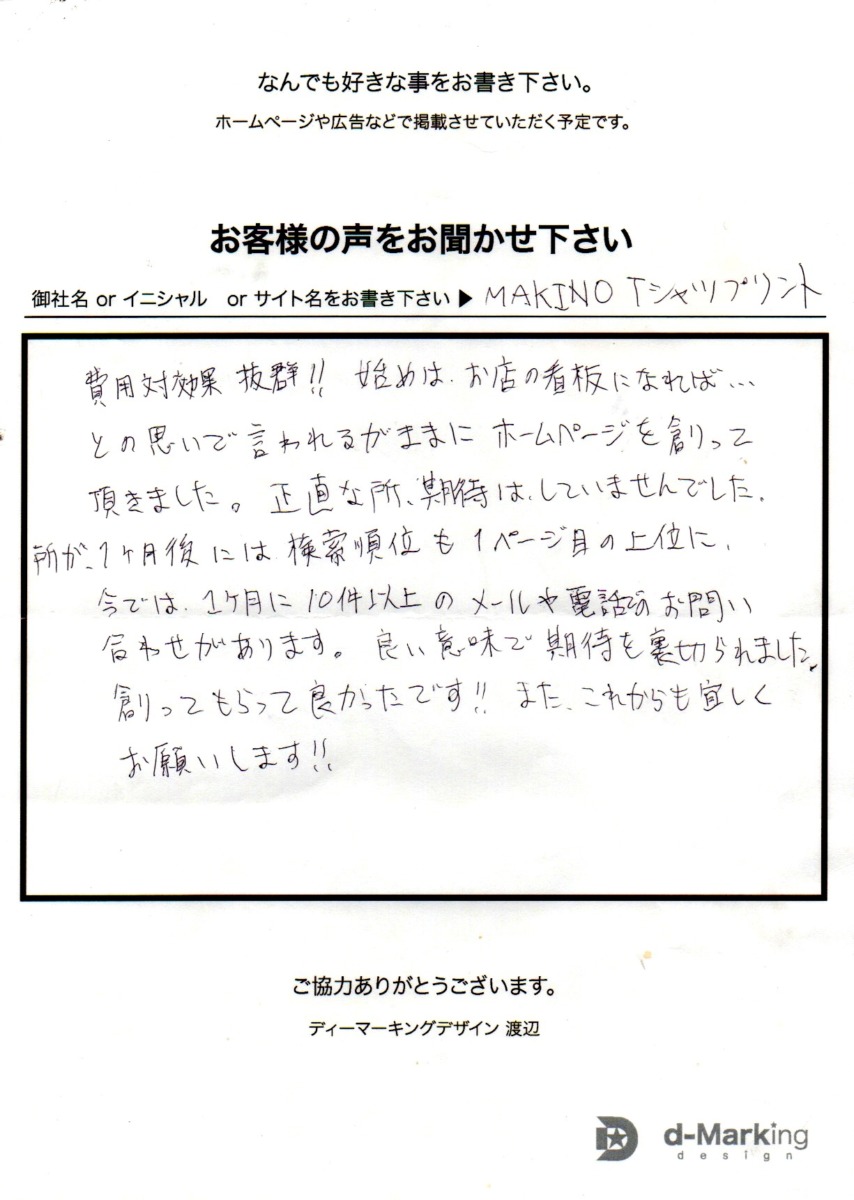 なんでも好きな事をお書き下さい。
ホームページや広告などで掲載させていただく予定です。
お客様の声をお聞かせ下さい
御社名 or イニシャル or サイト名をお書き下さい ▶ MAKINO Tシャツプリント
費用対効果 抜群!! 始めは、お店の看板になれば…
との思いで言われるがままにホームページを創って
頂きました。正直な所、期待は、していませんでした。
所が、1ヶ月後には検索順位も1ページ目の上位に、
今では、1ヶ月に10件以上のメールや電話でのお問い
合わせがあります。良い意味で期待を裏切られました。
創ってもらって良かったです!! また、これからも宜しく
お願いします!!
ご協力ありがとうございます。
ディーマーキングデザイン 渡辺
d-Marking
design